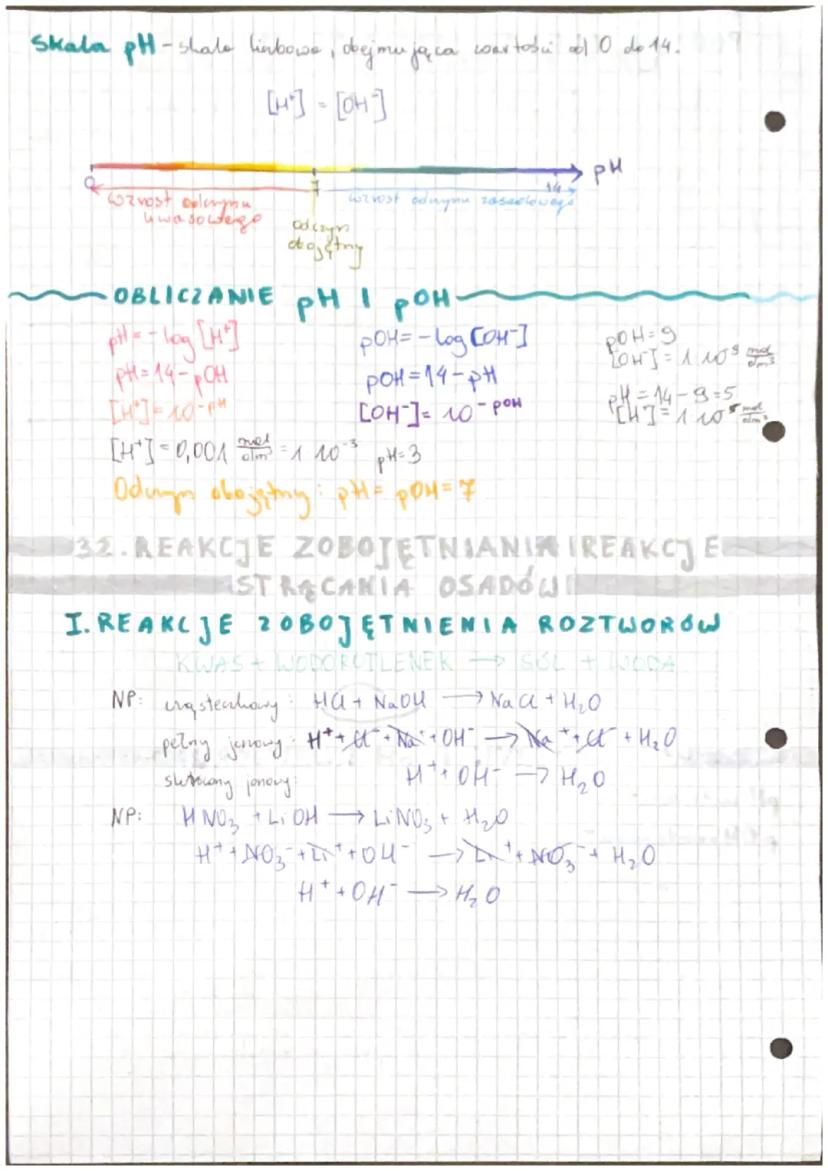 Skala pH - skala liczbowa, obejmująca wartości od 0 do 14.
[H⁺] = [OH⁻]
pH
0 7 14
wzrost odczynu kwasowego
wzrost odczynu zasadowego
odczyn obojętny
OBLICZANIE pH I pOH
pH = - log [H⁺]
pH = 14 - pOH
[H⁺] = 10⁻ᵖᴴ
pOH = - log [OH⁻]
pOH = 14 - pH
[OH⁻] = 10⁻ᵖᴼᴴ
pOH = 9
[OH⁻] = 1 10⁹ mol/dm³
pH = 14 - 9 = 5
[H⁺] = 1 10⁵ mol/dm³
[H⁺] = 0,001 mol/dm³ = 1 10⁻³ pH = 3
Odczyn obojętny: pH = pOH = 7
32. REAKCJE ZOBOJĘTNIANIA I REAKCJE
STRĄCANIA OSADÓW
I. REAKCJE ZOBOJĘTNIENIA ROZTWORÓW
KWAS + WODOROTLENEK → SÓL + WODA
NP: cząsteczkowy: HCl + NaOH → NaCl + H₂O
pełny jonowy: H⁺ + Cl⁻ + Na⁺ + OH⁻ → Na⁺ + Cl⁻ + H₂O
skrócony jonowy: H⁺ + OH⁻ → H₂O
NP: HNO₃ + LiOH → LiNO₃ + H₂O
H⁺ + NO₃⁻ + Li⁺ + OH⁻ → Li⁺ + NO₃⁻ + H₂O
H⁺ + OH⁻ → H₂O